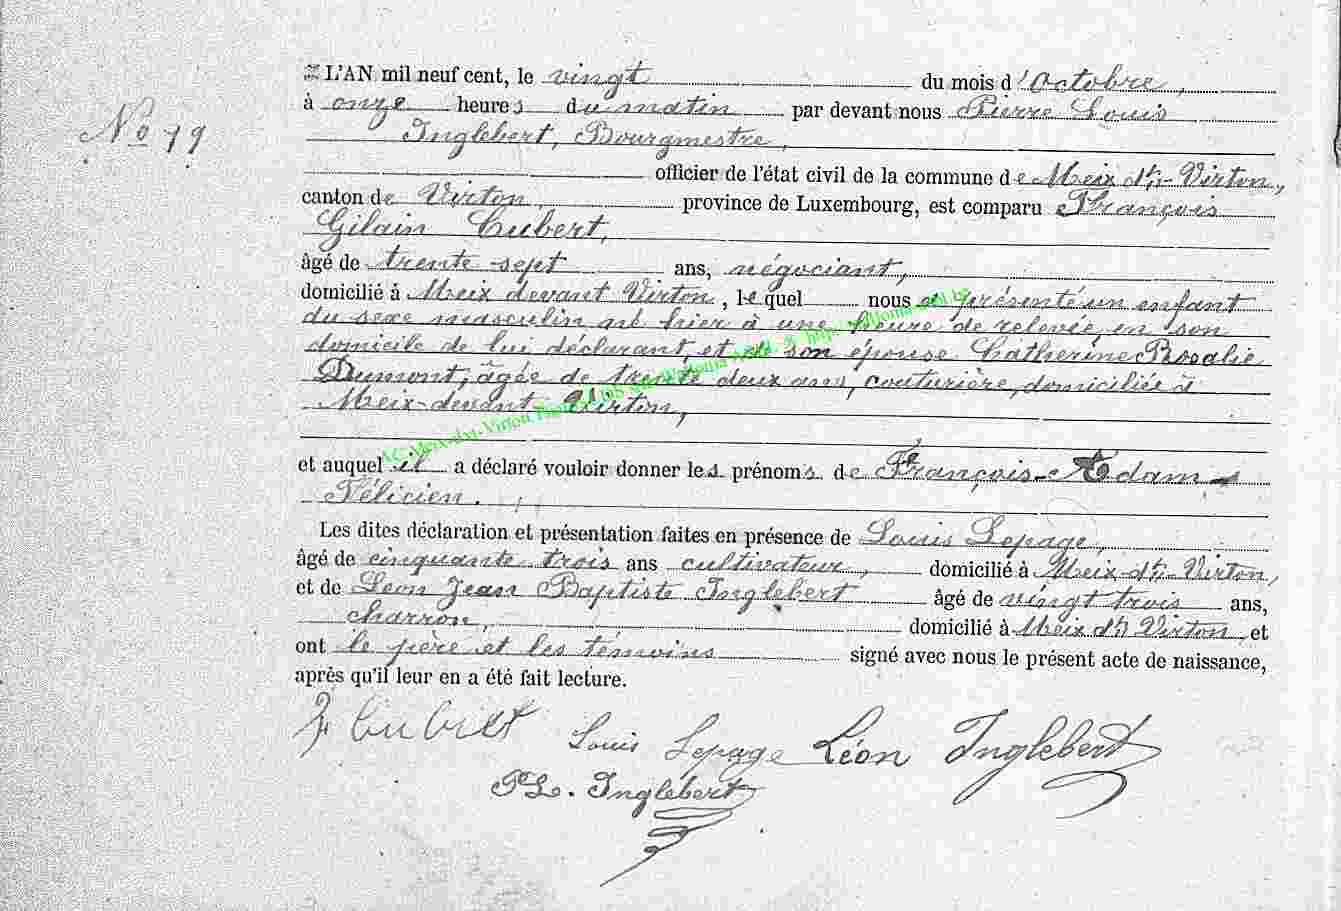 L'AN mil neuf cent, le vingt du mois d'Octobre,
No 79
à onze heures du matin par devant nous Pierre Louis
Inglebert, Bourgmestre,
officier de l'état civil de la commune de Meix dt-Virton,
canton de Virton, province de Luxembourg, est comparu François
Gilain Cubert,
âgé de trente-sept ans, négociant,
domicilié à Meix devant Virton, lequel nous a présenté un enfant
du sexe masculin né hier à une heure de relevée, en son
domicile de lui déclarant, et de son épouse Catherine Rosalie
Dumont, âgée de trente deux ans, couturière, domiciliée à
Meix-devant-Virton,
et auquel il a déclaré vouloir donner les prénoms de François-Adam-
Félicien.
Les dites déclaration et présentation faites en présence de Louis Lepage,
âgé de cinquante trois ans cultivateur, domicilié à Meix-dt-Virton,
et de Léon Jean Baptiste Inglebert âgé de vingt trois ans,
charron, domicilié à Meix dt Virton et
ont le père et les témoins signé avec nous le présent acte de naissance,
après qu'il leur en a été fait lecture.
F Cubert Louis Lepage Léon Inglebert
P L. Inglebert